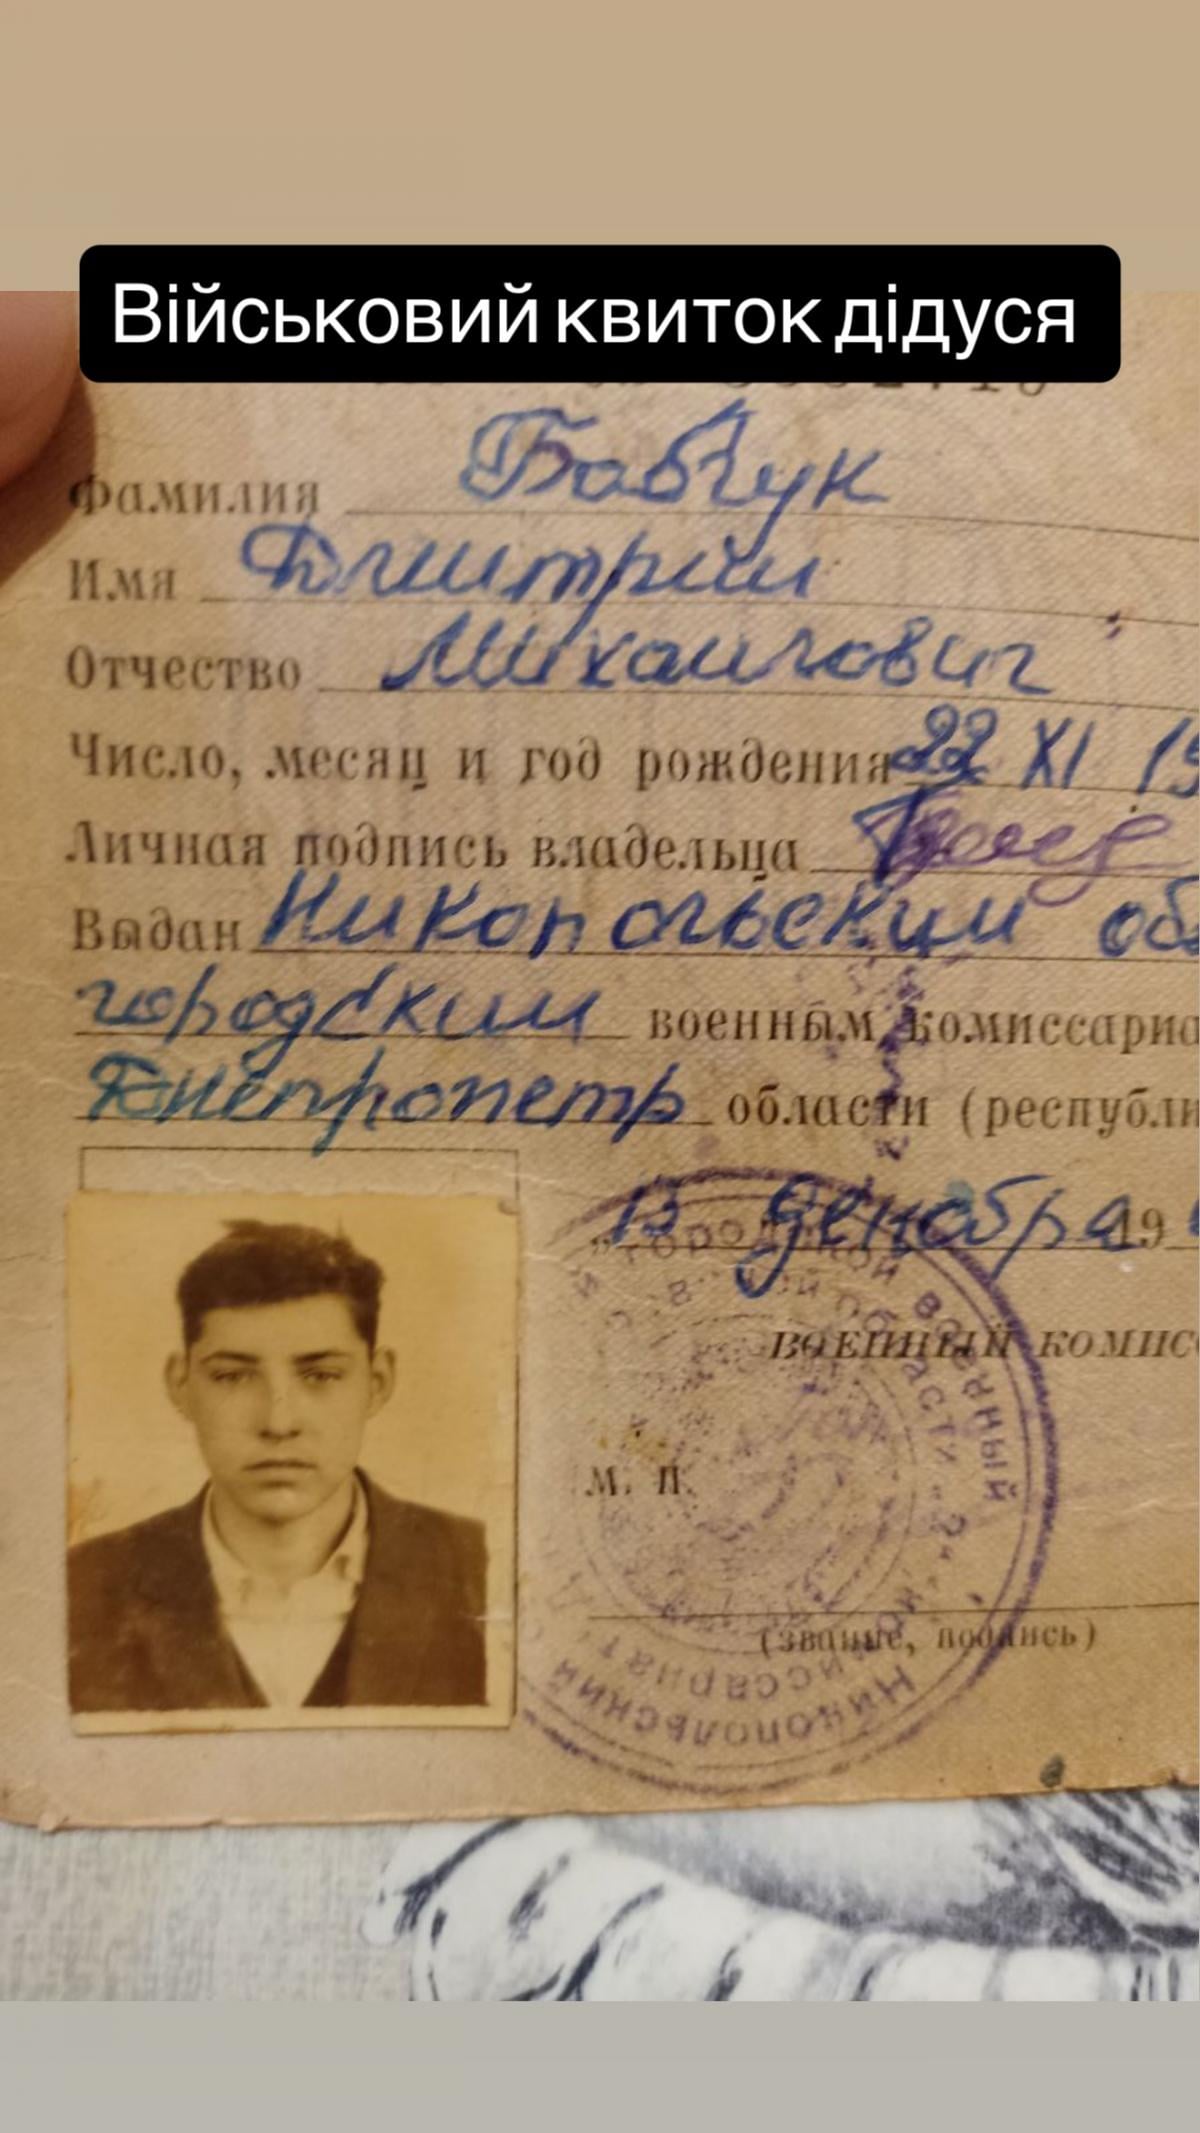 Військовий квиток дідуся
Фамилия Бабчук
Имя Дмитрий
Отчество Михайлович
Число, месяц и год рождения 22 XI 19
Личная подпись владельца
Выдан Никопольским об
городским военным комиссариа
Днепропетр области (республи
13 декабря 19
военный комис
М. П.
(звание, подпись)
Никопольский городской военный
комиссариат
области